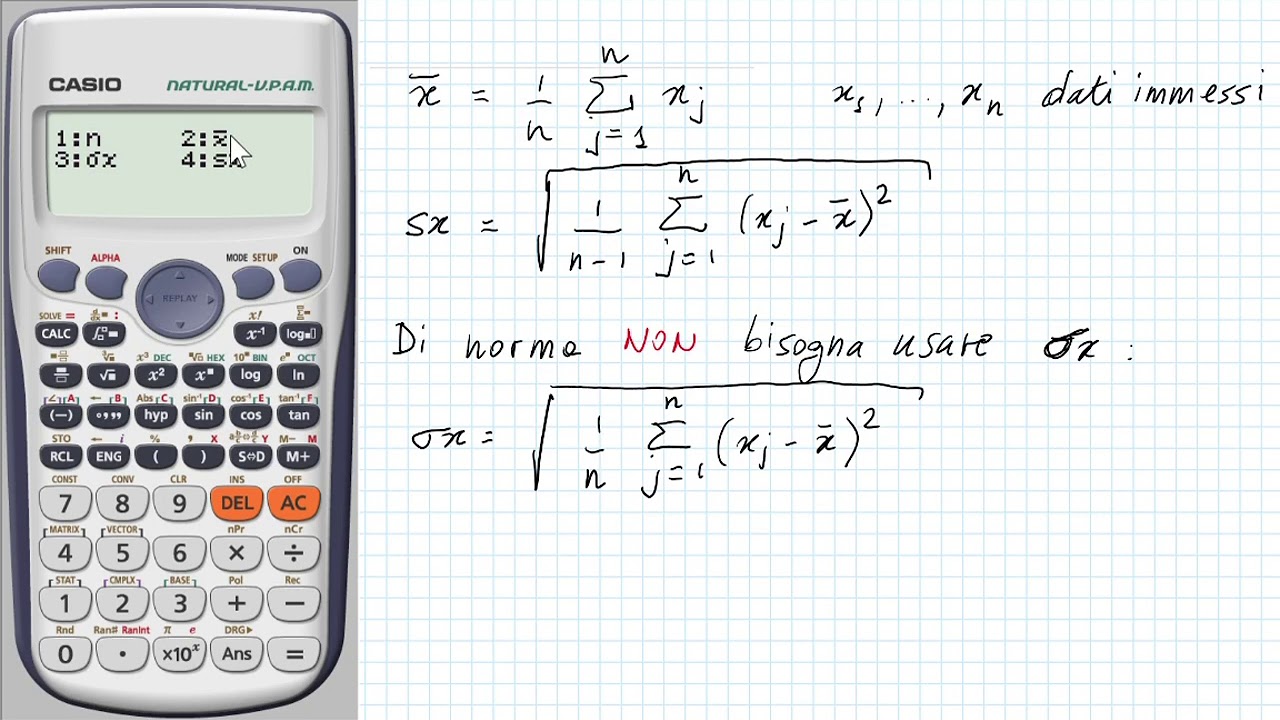 CASIO NATURAL-V.P.A.M.
1:n 2:x̄
3:σx 4:sx
SHIFT ALPHA MODE SETUP ON
REPLAY
SOLVE = : x!
CALC x⁻¹ log
x³ DEC ˣ√ HEX 10ˣ BIN eˣ OCT
√ x² xⁿ log ln
∠ A ← B Abs C sin⁻¹ D cos⁻¹ E tan⁻¹ F
(−) °,,, hyp sin cos tan
STO ← i % , X Y M− M
RCL ENG ( ) S⇔D M+
CONST CONV CLR INS OFF
7 8 9 DEL AC
MATRIX VECTOR nPr nCr
4 5 6 × ÷
STAT CMPLX BASE Pol Rec
1 2 3 + −
Rnd Ran# RanInt π e DRG▶
0 · ×10ˣ Ans =
x̄ = 1/n Σ_{j=1}^{n} x_j x₁, ..., x_n dati immessi
sx = √(1/(n-1) Σ_{j=1}^{n} (x_j - x̄)²)
Di norma NON bisogna usare σx :
σx = √(1/n Σ_{j=1}^{n} (x_j - x̄)²)